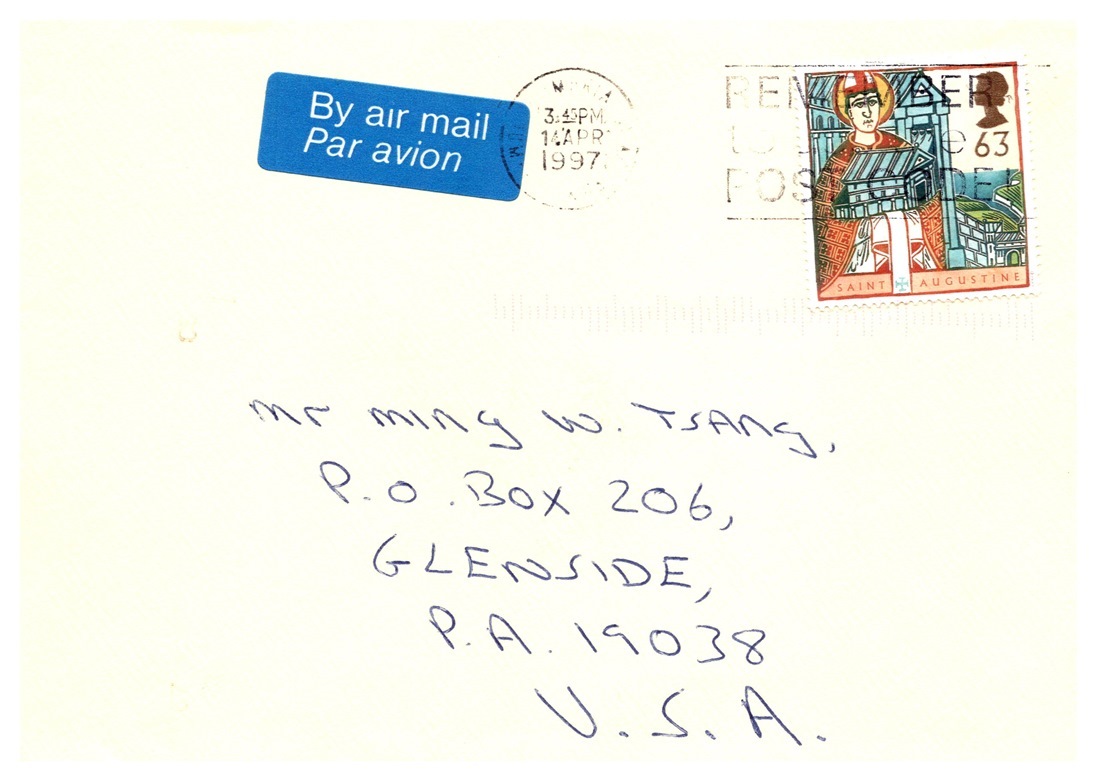 By air mail
Par avion
3.45PM
14 APR
1997
REMEMBER
to use the
POSTCODE
63
SAINT AUGUSTINE
Mr Ming W. Tsang,
P.O. Box 206,
GLENSIDE,
P.A. 19038
U.S.A.